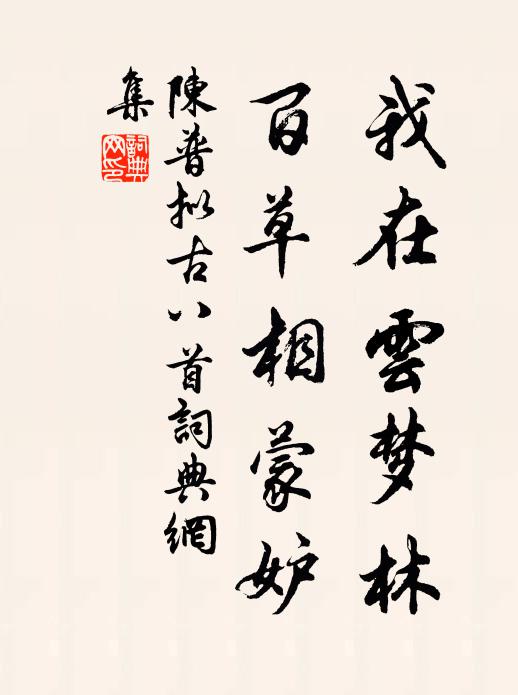 我在雲梦林
百草相蒙妒
陳普拟古八首詞典網
集
詞典
网印